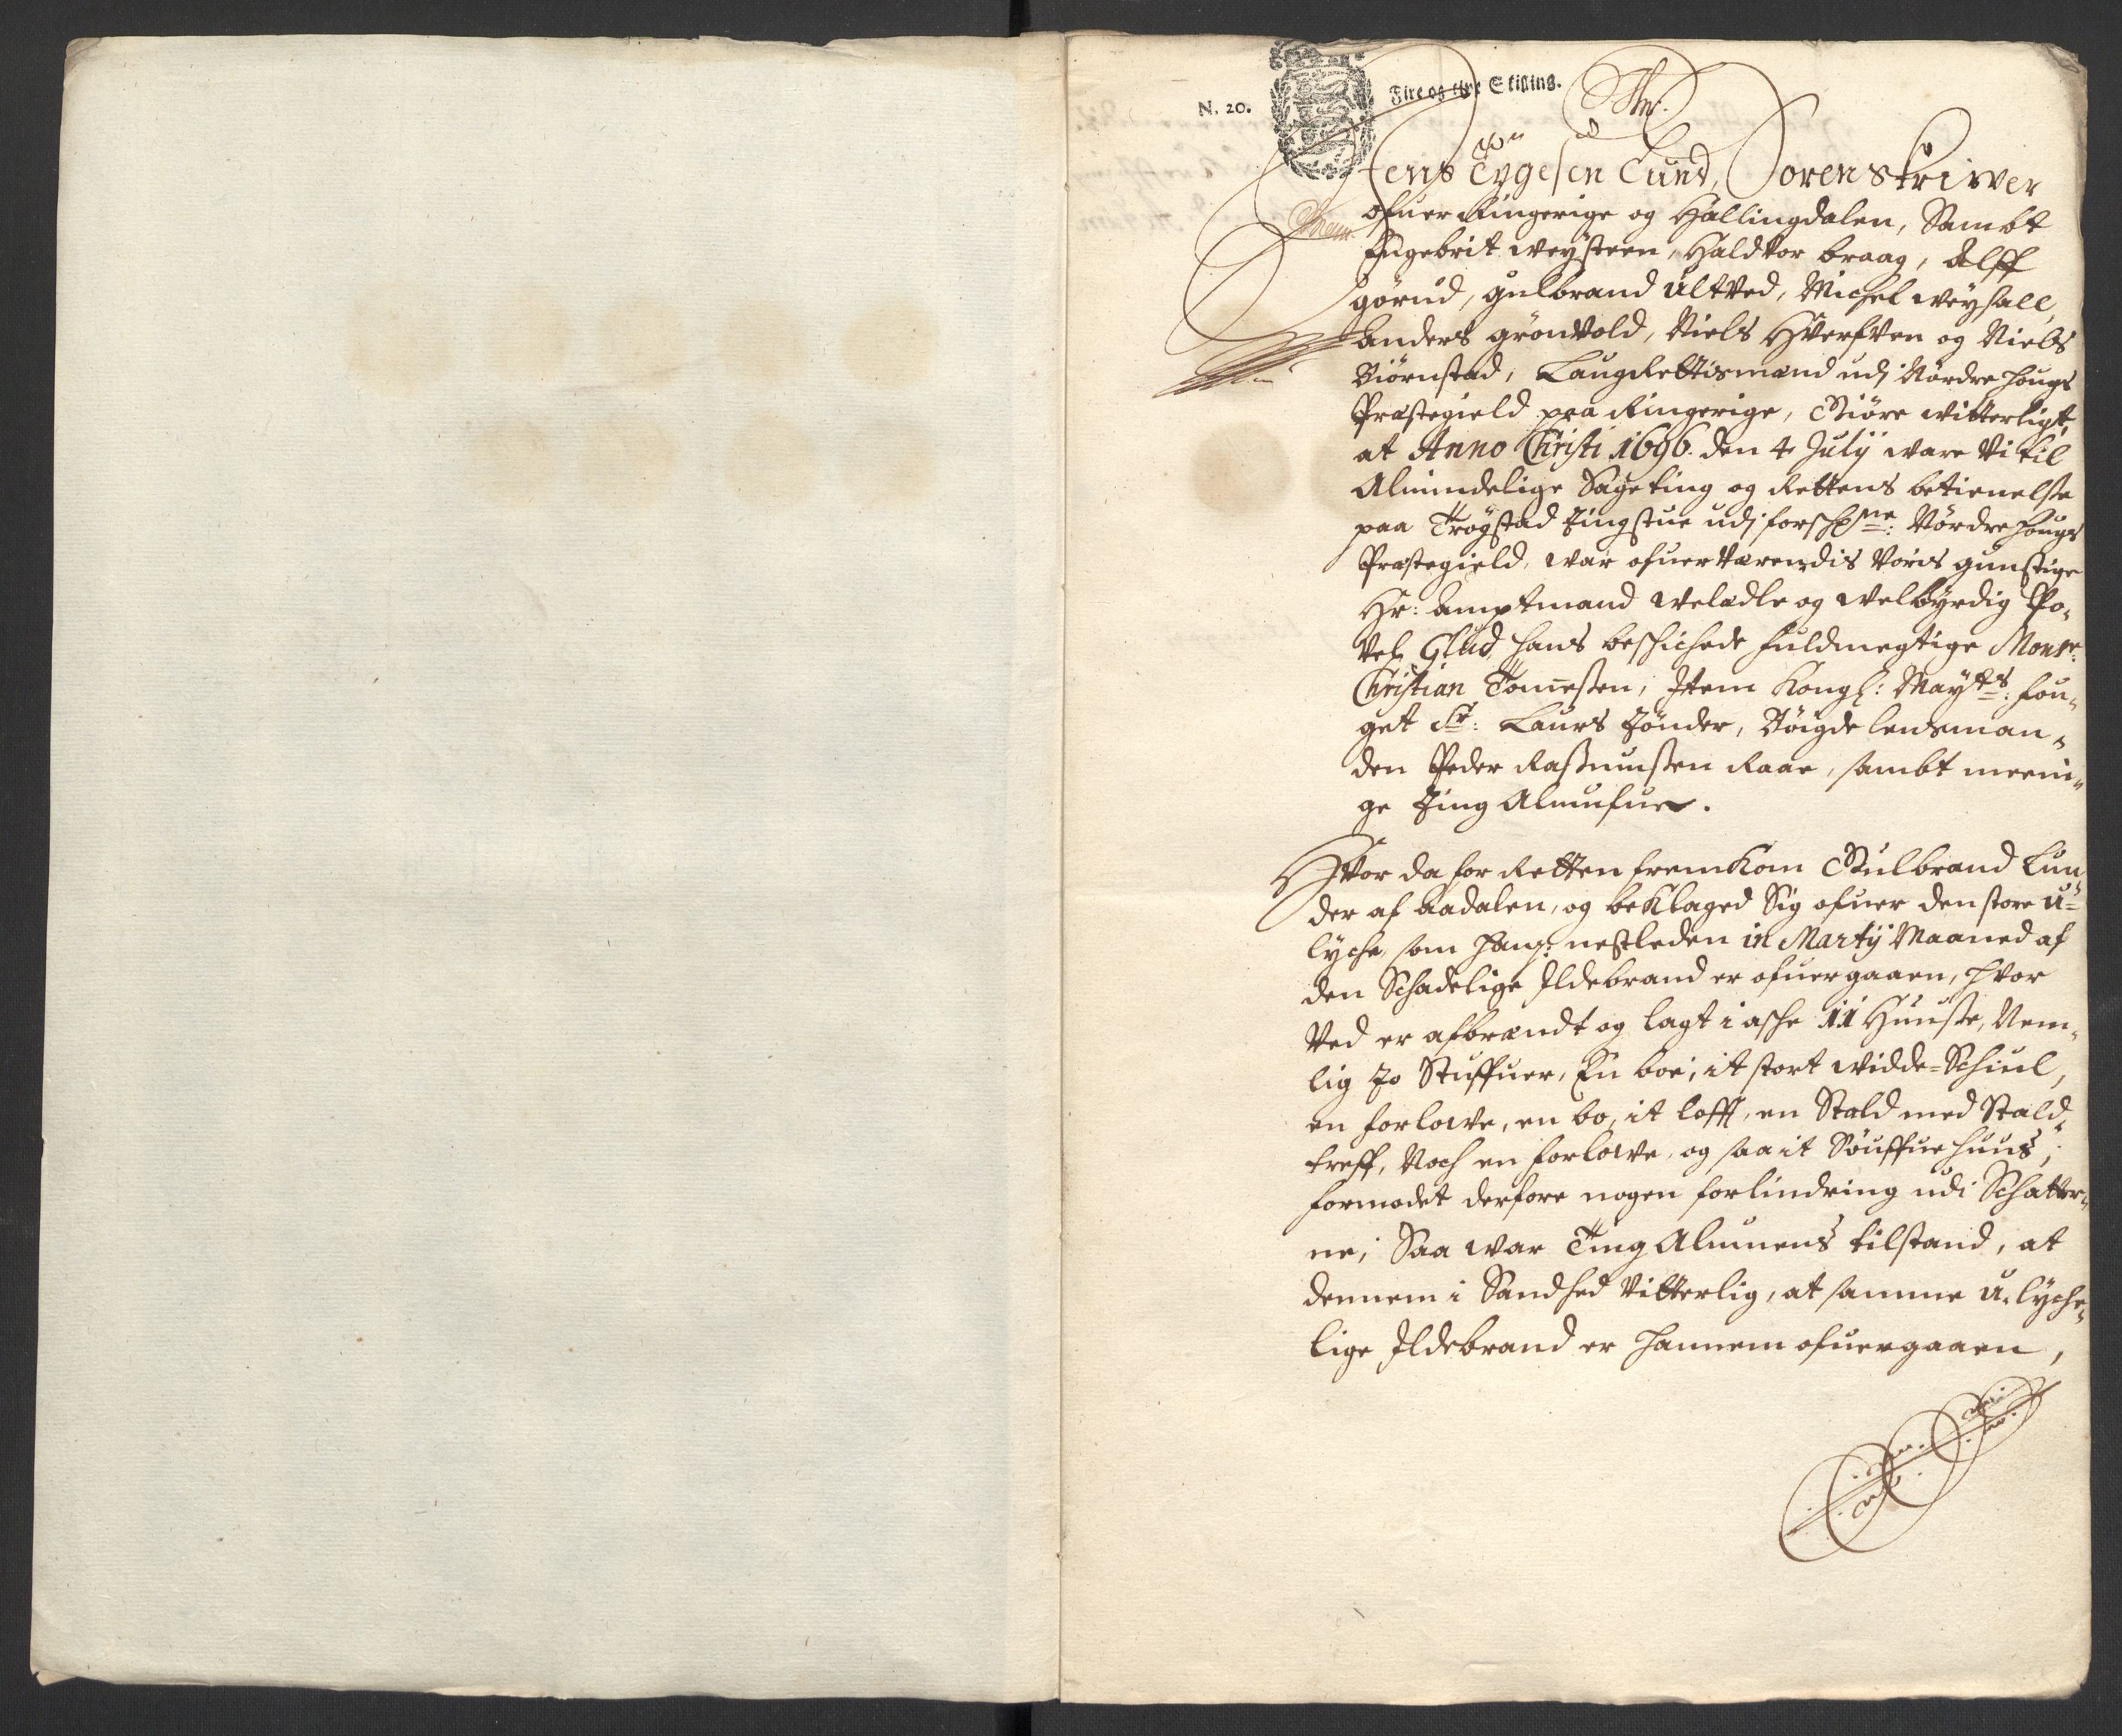 N. 20. Fire og tive Skilling.
Jens Tygesen Lund, Sorenskriwer
ofuer Ringerige og Hallingdalen, Sambt
Engebrit weysteen, Haldvor braag, Alff
gørud, gulbrand ultved, Michel weysall,
Anders grønvold, Niels Hverfven og Niels
Biørnstad, Laugrettismænd udj Nordrehougs
Præstegield paa Ringerige, Giøre witterligt,
at Anno Christi 1696. den 4 July ware Vi til
Almindelige Sageting og Rettens betienelsse
paa Trøgstad Tingstue udj forschrefne: Nordrehougs
Præstegield, war ofuerværendis Voris gunstige
Hr: Amptmand welædle og welbyrdig Po-
vel Glud, hans beschichede fuldmegtige Monsr:
Christian Tomessen, Item Kongl: Mayts: fou-
get Sr: Laurs Tønder, Bøigde lensman-
den Peder Rassmussen Raae, sambt meeni-
ge Ting Almufue.
Hvor da for Retten fremkom Gulbrand Lun
der af Aadalen, og beklaged Sig ofuer den store u-
lyche, som hannem nestleden in Martij Maaned af
den Schadelige Ildebrand er ofuergaaen, hvor
Ved er afbrændt og lagt i asche 11 Huusse, Nem-
lig 2o Stuffuer, En boe, it stort widde-Schiul,
en forlowe, en bo, it lofft, en Stald med Stald-
treff, Noch en forlowe, og saa it Søuffuehuus,
formodet derfore nogen forlindring udi Schatter-
ne; Saa war Ting Almuens tilstand, at
dennem i Sandhed Vitterlig, at samme u-lyche-
lige Ildebrand er hannem ofuergaaen,